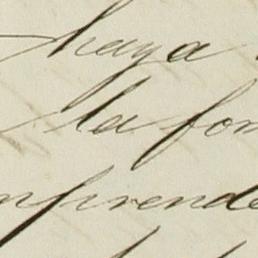 haya
la for
mprende